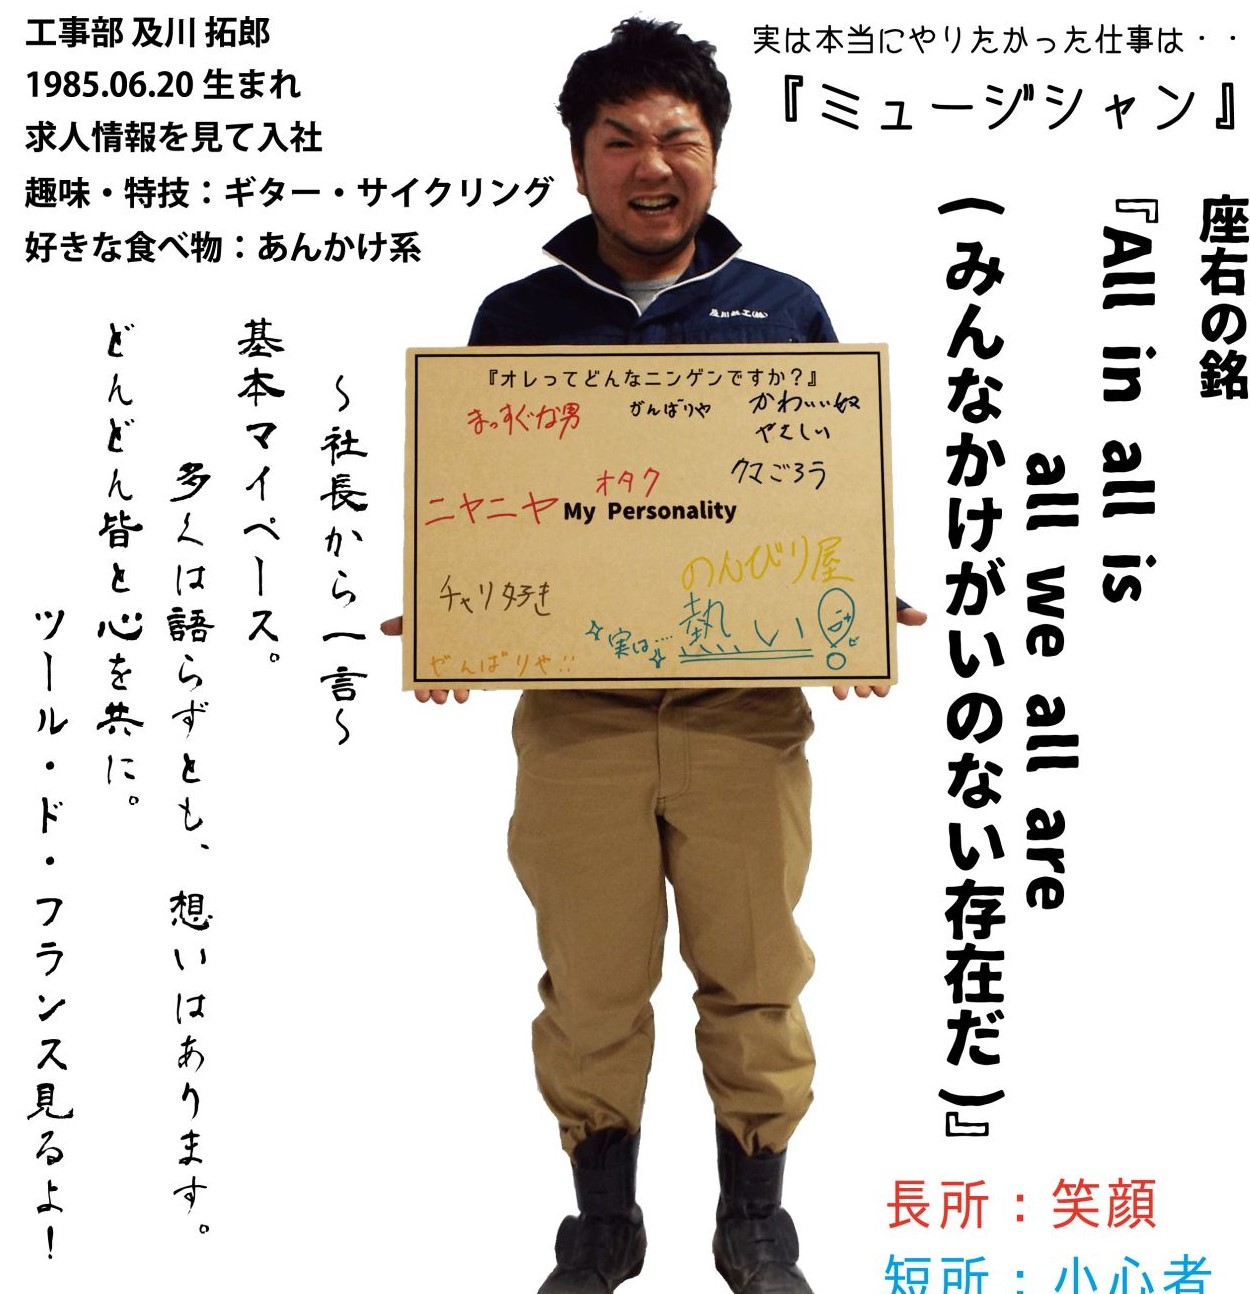 工事部 及川 拓郎
1985.06.20 生まれ
求人情報を見て入社
趣味・特技：ギター・サイクリング
好きな食べ物：あんかけ系
実は本当にやりたかった仕事は・・
『ミュージシャン』
座右の銘
『All in all is
all we all are
(みんなかけがいのない存在だ)』
～社長から一言～
基本マイペース。
多くは語らずとも、想いはあります。
どんどん皆と心を共に。
ツール・ド・フランス見るよ！
及川鉄工(株)
『オレってどんなニンゲンですか？』
まっすぐな男
がんばりや
かわいい奴
やさしい
クマごろう
オタク
ニヤニヤ
My Personality
のんびり屋
チャリ好き
実は…熱い
がんばりや!!
長所：笑顔
短所：小心者